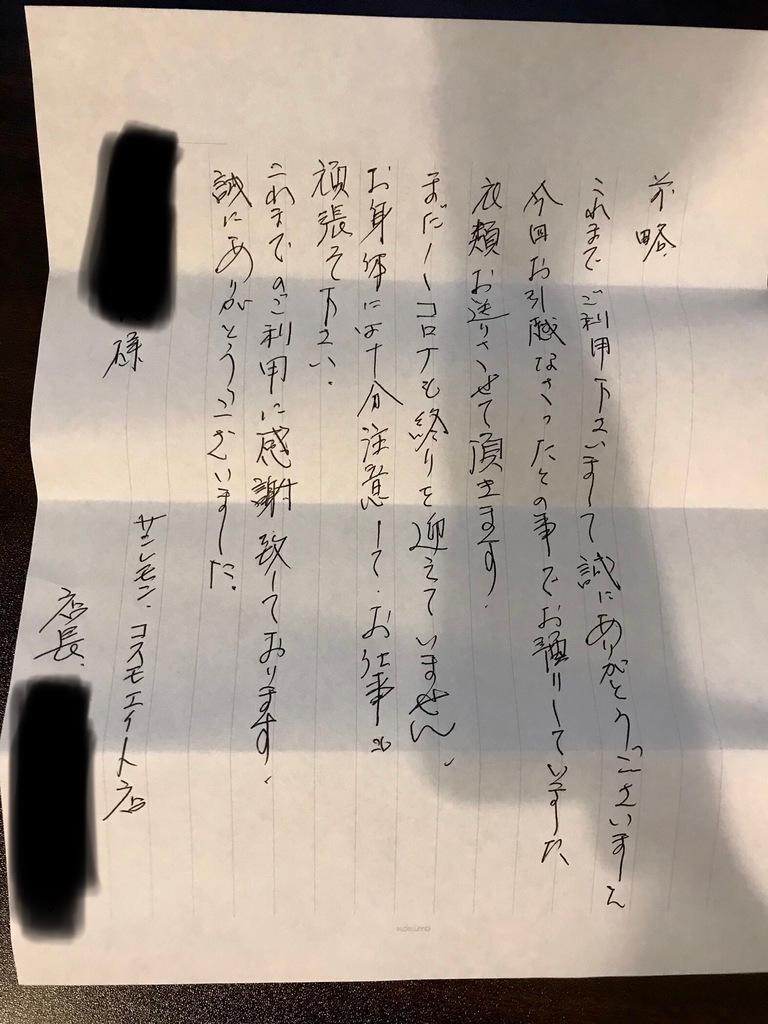 前略
これまでご利用下さいまして誠にありがとうございました
今回お引越なさったとの事でお預りしていました
衣類お送りさせて頂きます.
まだ〳〵コロナも終りを迎えていません、
お身体には十分注意して、お仕事も
頑張って下さい.
これまでのご利用に感謝致しております、
誠にありがとうございました.
様
サンレモン、コスモエイト店
店長、
KOKUYO